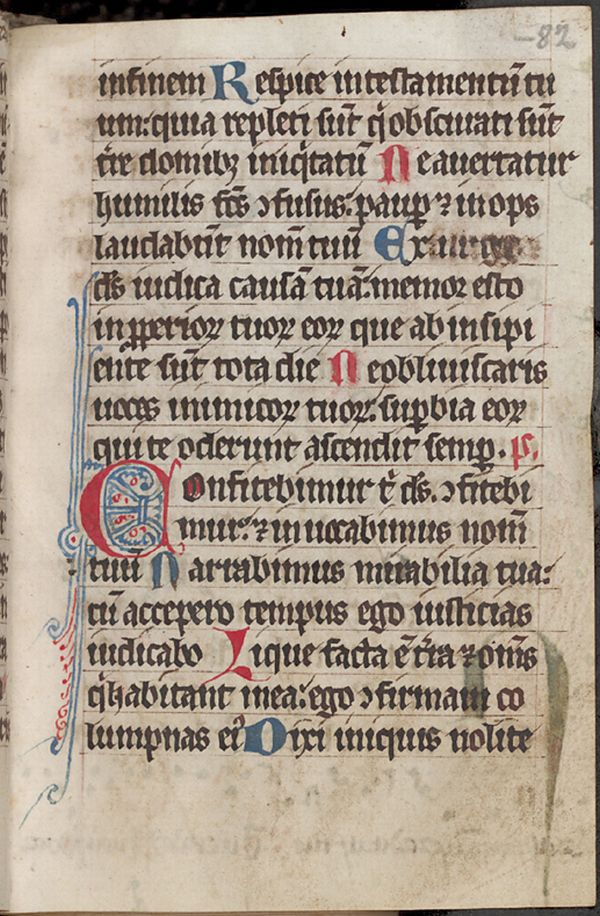 82
infinem Respice intestamentū tu
um: quia repleti sūt q̇ obscurati sūt
tr̄e domibꝫ iniq̇tatū Ne avertatur
humilis fc̄s ꝯfusus. paup̱ ⁊ inops
laudabūt nom̄ tuū Exurge
ds̄ iudica causā tuā. memor esto
inp̱periorꝝ tuorꝝ eorꝝ que ab insipi
ente sūt tota die Ne obliviscaris
uoces inimicorꝝ tuorꝝ. sup̱bia eorꝝ
qui te oderunt ascendit semp̱. ps.
Confitebimur t̄ ds̄. ꝯfitebi
mur. ⁊ inuocabimus nom̄
tuū Narrabimus mirabilia tua:
cū accepero tempus ego iusticias
iudicabo Lique facta ē t̄ra ⁊ om̄s
q̇ habitant inea: ego ꝯfirmaui co
lumpnas eiꝰ Dixi iniquis nolite